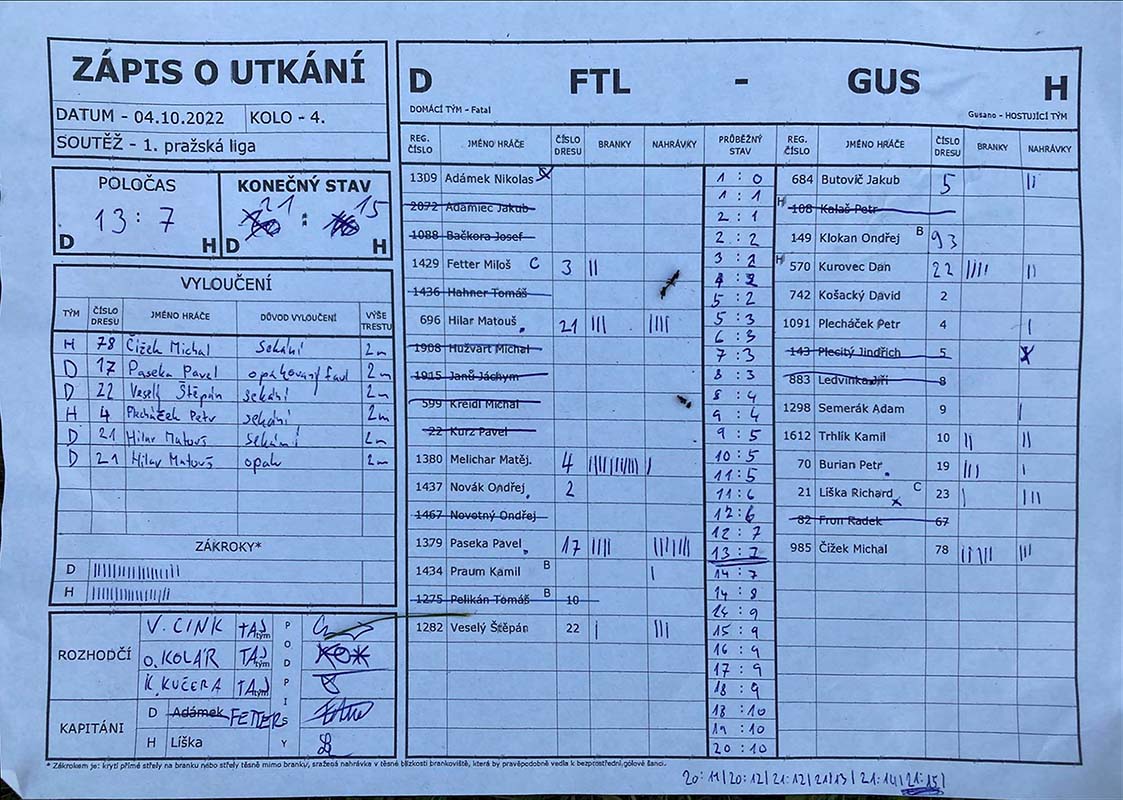 ZÁPIS O UTKÁNÍ
DATUM - 04.10.2022 KOLO - 4.
SOUTĚŽ - 1. pražská liga
POLOČAS
13 : 7
D H
KONEČNÝ STAV
21 : 15
D H
VYLOUČENÍ
TÝM ČÍSLO DRESU JMÉNO HRÁČE DŮVOD VYLOUČENÍ VÝŠE TRESTU
H 78 Čížek Michal sekání 2m
D 17 Paseka Pavel opakovaný faul 2m
D 22 Veselý Štěpán sekání 2m
H 4 Plecháček Petr sekání 2m
D 21 Hilar Matouš sekání 2m
D 21 Hilar Matouš opak 2m
ZÁKROKY*
D
H
ROZHODČÍ
V. CINK TAJ tým
O. KOLÁR TAJ tým
K. KUČERA TAJ tým
PODPISY
KAPITÁNI
D Adámek FETTERS
H Líška
D FTL - GUS H
DOMÁCÍ TÝM - Fatal Gusano - HOSTUJÍCÍ TÝM
REG. ČÍSLO JMÉNO HRÁČE ČÍSLO DRESU BRANKY NAHRÁVKY
1309 Adámek Nikolas
2072 Adamiec Jakub
1088 Bačkora Josef
1429 Fetter Miloš C 3 ||
1436 Hahner Tomáš
696 Hilar Matouš 21 ||| ||||
1908 Hužvart Michal
1915 Janů Jáchym
599 Kreidl Michal
22 Kurz Pavel
1380 Melichar Matěj. 4
1437 Novák Ondřej 2
1467 Novotný Ondřej
1379 Paseka Pavel 17 ||||
1434 Praum Kamil B |
1275 Pelikán Tomáš B 10
1282 Veselý Štěpán 22 | |||
PRŮBĚŽNÝ STAV
1 : 0
1 : 1
2 : 1
2 : 2
3 : 2
4 : 2
5 : 2
5 : 3
6 : 3
7 : 3
8 : 3
8 : 4
9 : 4
9 : 5
10 : 5
11 : 5
11 : 6
12 : 6
12 : 7
13 : 7
14 : 7
14 : 8
14 : 9
15 : 9
16 : 9
17 : 9
18 : 9
18 : 10
19 : 10
20 : 10
REG. ČÍSLO JMÉNO HRÁČE ČÍSLO DRESU BRANKY NAHRÁVKY
684 Butovič Jakub 5 ||
H 108 Kalaš Petr
149 Klokan Ondřej B 93
H 570 Kurovec Dan 22 |||| ||
742 Košacký David 2
1091 Plecháček Petr 4 |
143 Plecitý Jindřich 5
883 Ledvinka Jiří 8
1298 Semerák Adam 9 |
1612 Trhlík Kamil 10 || ||
70 Burian Petr 19 ||| |
21 Líška Richard C 23 | |||
82 Fron Radek 67
985 Čížek Michal 78 ||||| |||
* Zákrokem je: krytí přímé střely na branku nebo střely těsně mimo branky, sražená nahrávka v těsné blízkosti brankoviště, která by pravěpodobně vedla k bezprostřední gólové šanci.
20:11 | 20:12 | 21:12 | 21:13 | 21:14 | 21:15 |